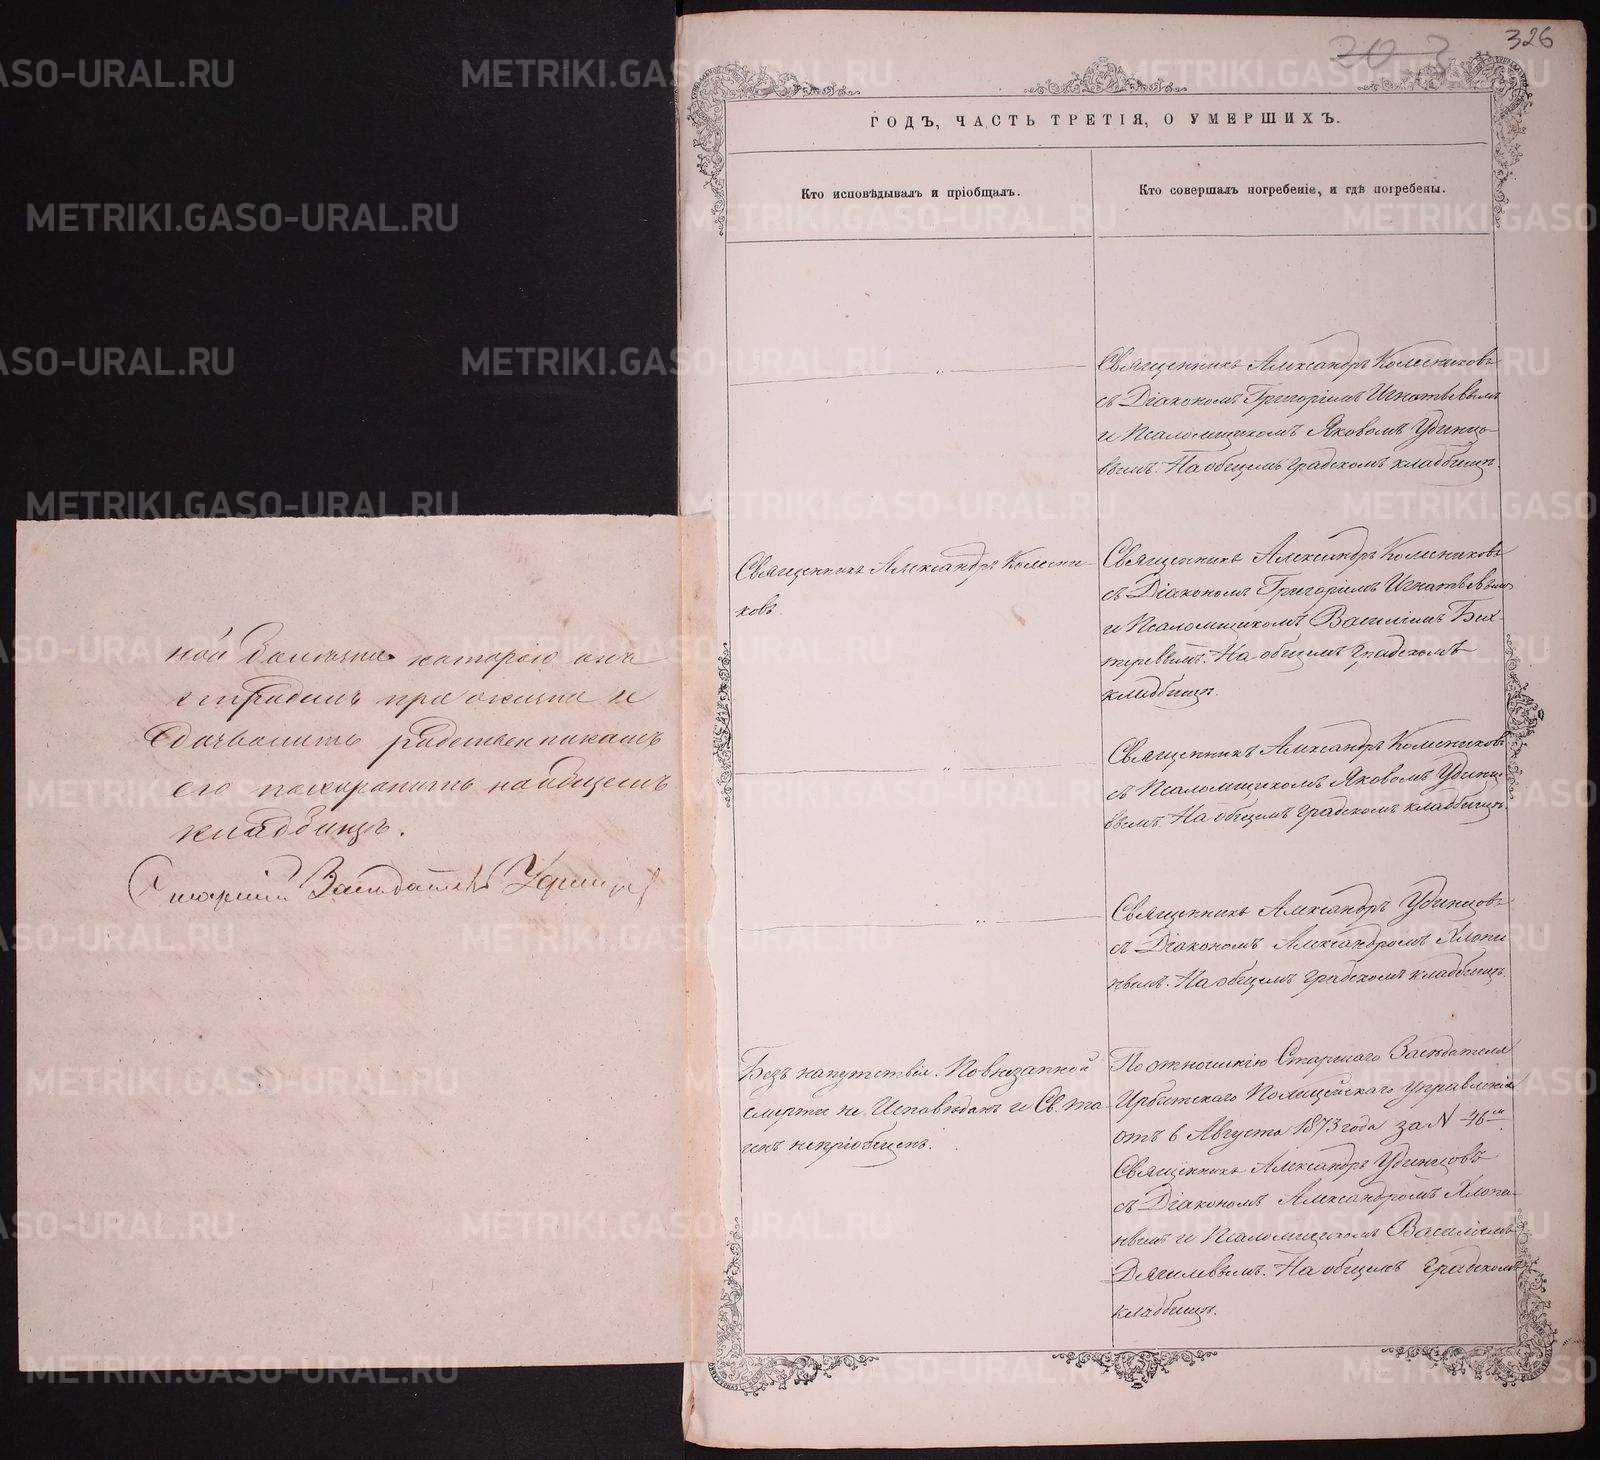 ной болезни которою онъ
страдалъ при жизни и
дозволить родственникамъ
его похоронить на общемъ
кладбищѣ.
Старшій Засѣдатель
326
ГОДЪ, ЧАСТЬ ТРЕТІЯ, О УМЕРШИХЪ.
Кто исповѣдывалъ и пріобщалъ.
Кто совершалъ погребеніе, и гдѣ погребены.
Священникъ Александръ Колесниковъ
съ Діакономъ Григоріемъ Игнатьевымъ
и Псаломщикомъ Яковомъ Удинцо-
вымъ. На общемъ градскомъ кладбищѣ.
Священникъ Александръ Колесни-
ковъ
Священникъ Александръ Колесниковъ
съ Діакономъ Григоріемъ Игнатьевымъ
и Псаломщикомъ Василіемъ Бих-
теревымъ. На общемъ градскомъ
кладбищѣ.
Священникъ Александръ Колесниковъ
съ Псаломщикомъ Яковомъ Удинцо-
вымъ. На общемъ градскомъ кладбищѣ.
Священникъ Александръ Удинцовъ
съ Діакономъ Александромъ Хлопи-
нымъ. На общемъ градскомъ кладбищѣ.
Безъ напутствія. По внезапной
смерти не Исповѣданъ и Св. та-
инъ непріобщенъ.
По отношенію Старшаго Засѣдателя
Ирбитскаго Полицейскаго управленія
отъ 6 Августа 1873 года за N 46
Священникъ Александръ Удинцовъ
съ Діакономъ Александромъ Хлопи-
нымъ и Псаломщикомъ Василіемъ
Дягилевымъ. На общемъ градскомъ
кладбищѣ.
METRIKI.GASO-URAL.RU